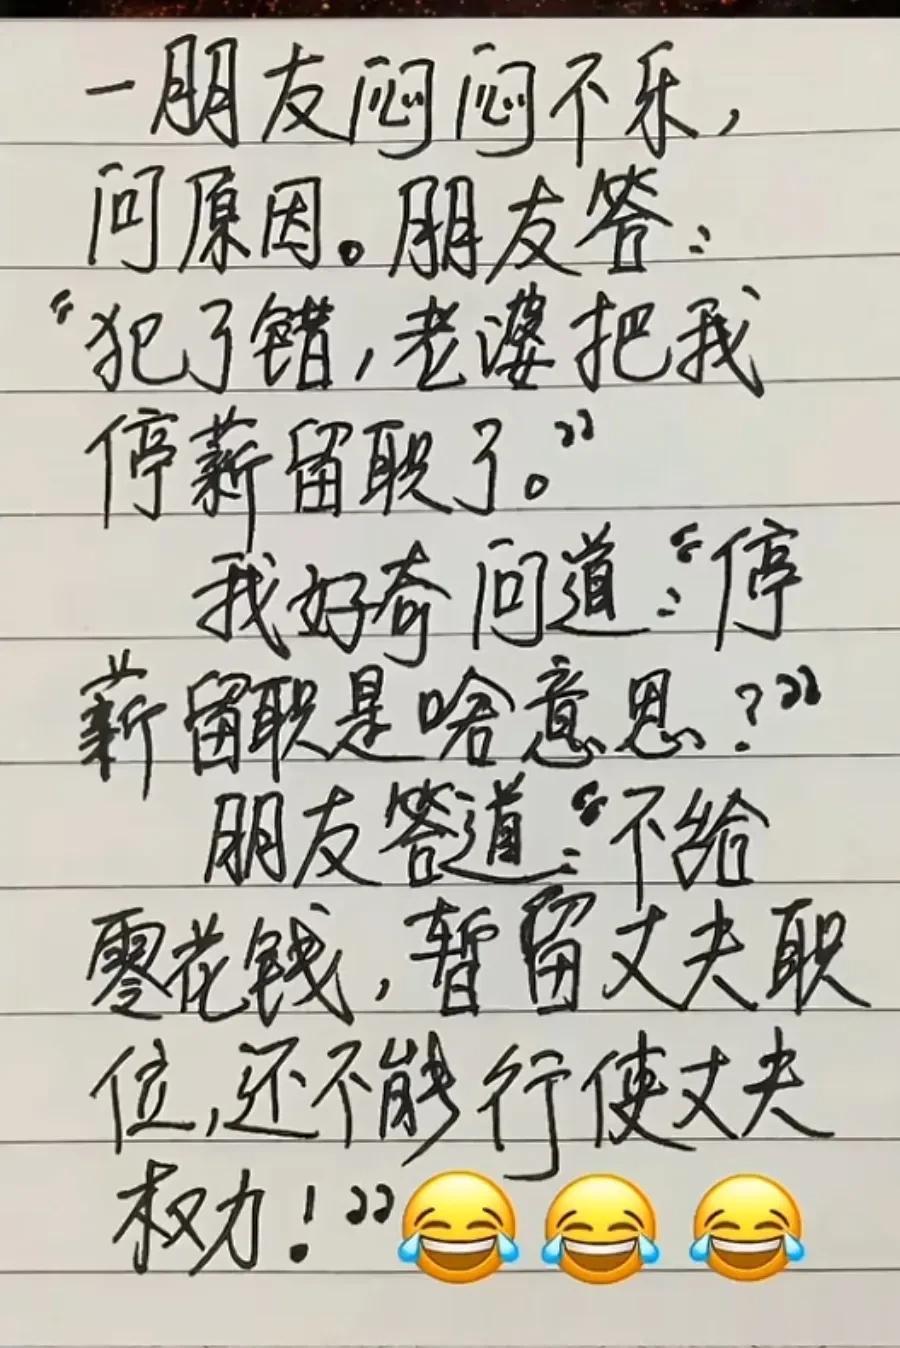 一朋友闷闷不乐，
问原因。朋友答：
“犯了错，老婆把我
停薪留职了。”
我好奇问道：“停
薪留职是啥意思？”
朋友答道：“不给
零花钱，暂留丈夫职
位，还不能行使丈夫
权力！”😂😂😂